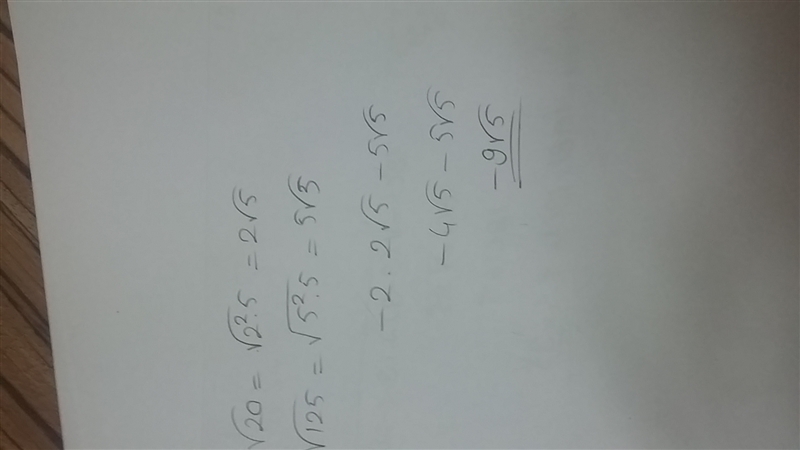 √20 = √2².5 = 2√5
√125 = √5².5 = 5√5
-2.2√5 - 5√5
-4√5 - 5√5
-9√5